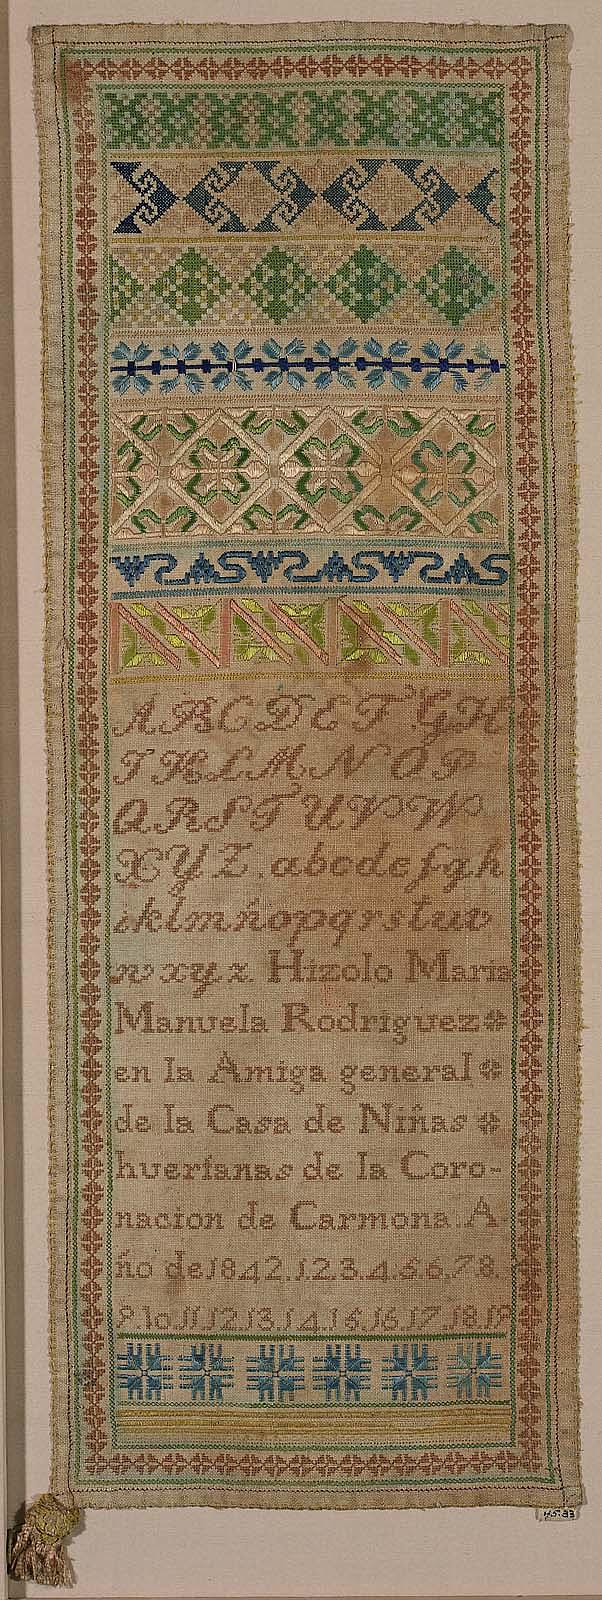 A B C D E F G H
I K L M N O P
Q R S T U V W
X Y Z. a b c d e f g h
i k l m n ñ o p q r s t u v
w x y z Hizolo Maria
Manuela Rodriguez
en la Amiga general
de la Casa de Niñas
huerfanas de la Coro-
nacion de Carmona. A-
ño de 1842. 1.2.3.4.5.6.7.8.
9.10.11.12.13.14.15.16.17.18.19
45.83